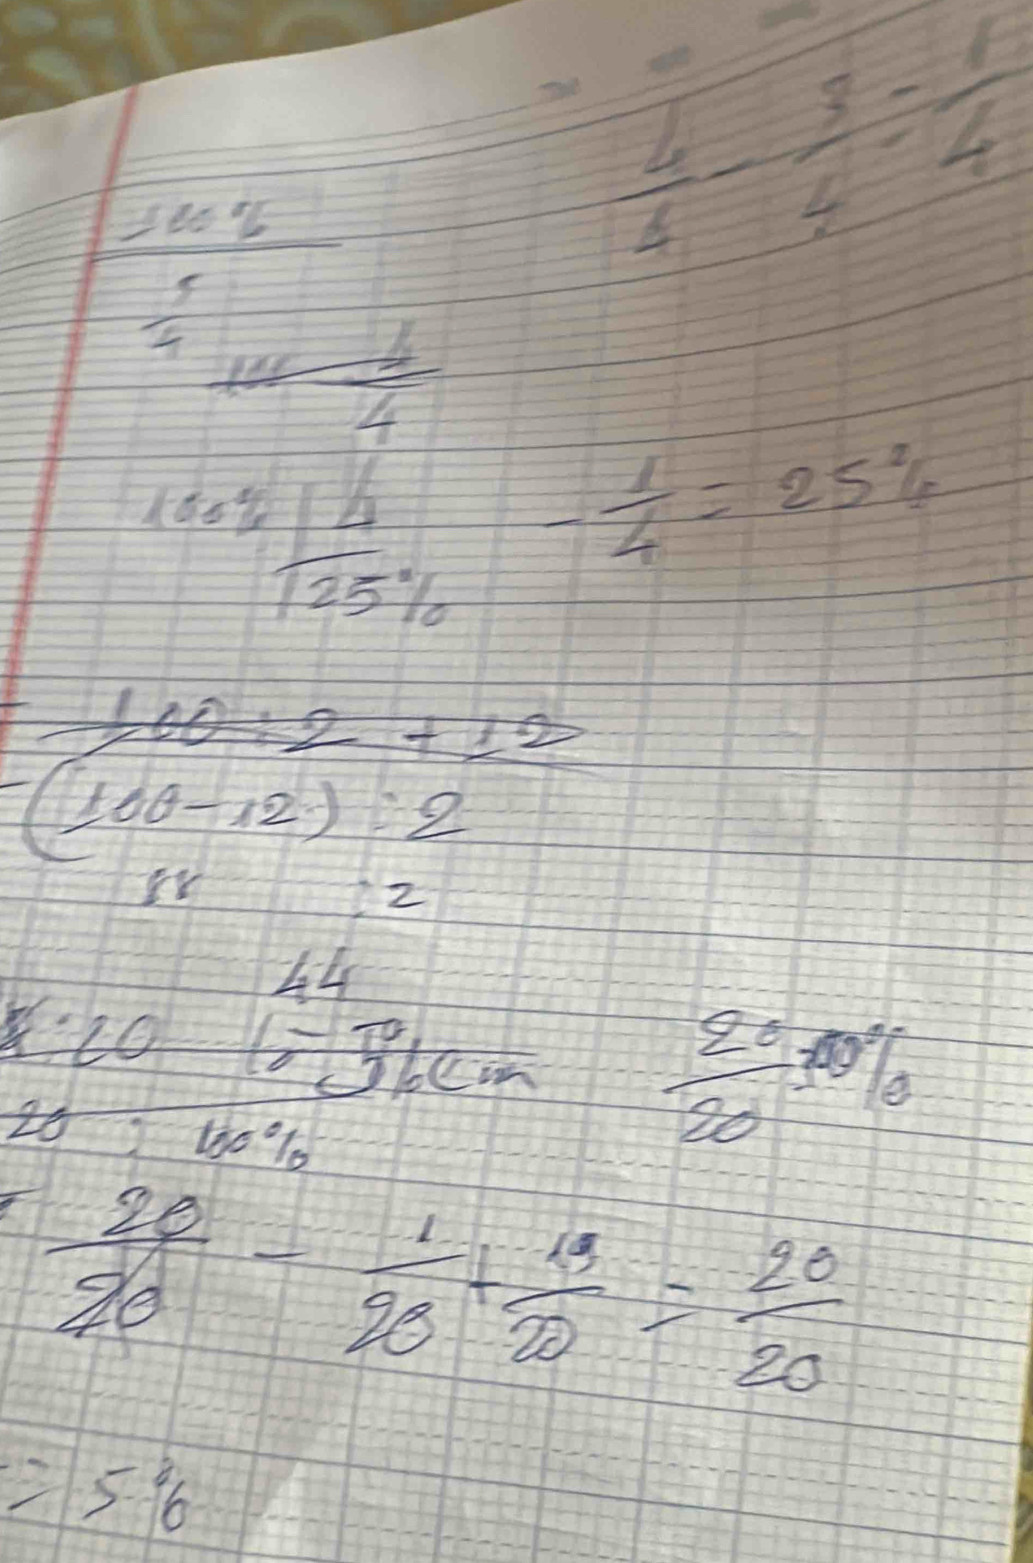 4/4 - 3/4 = 1/4
100%
5/4
4/4
100% | 4
125%
- 1/4 = 25%
100 : 2 + 12
(100 - 12) : 2
88 : 2
44
: 20
cm
20/20 100%
20 : 100%
20/20 - 1/20 + 19/20 = 20/20
= 5%